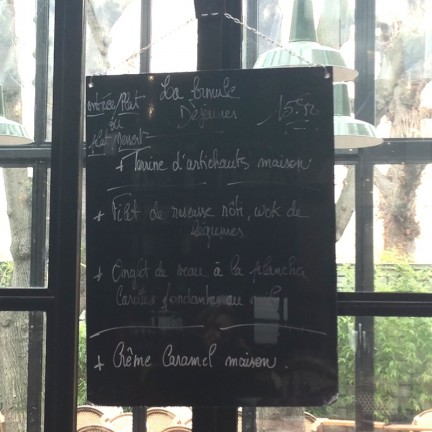 entrée/Plat
ou
plat/Dessert
La formule
Déjeuner
15.50
+ Terrine d'artichauts maison
+ Filet de rascasse rôti, wok de
légumes
+ Onglet de veau à la plancha
Carottes fondantes au
+ Crème Caramel maison.